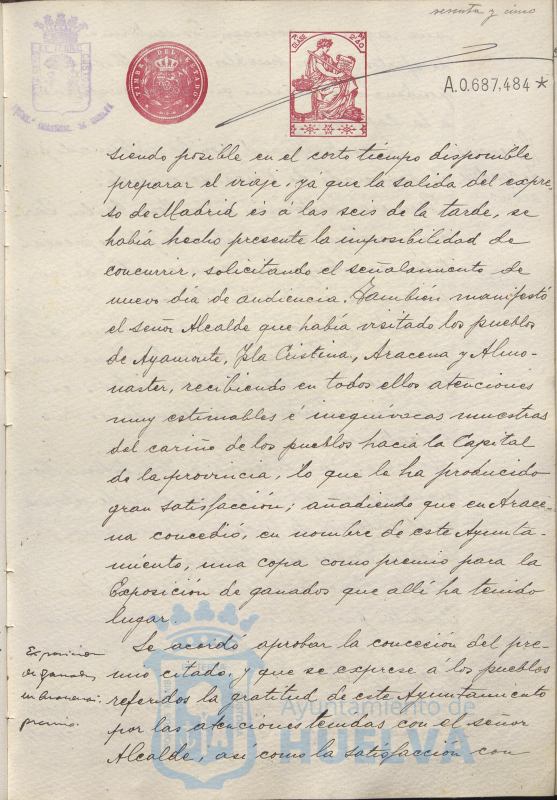 sesenta y cinco
TIMBRE DEL ESTADO
CLASE
A.0.687,484 *
siendo posible en el corto tiempo disponible
preparar el viaje, ya que la salida del expre-
so de Madrid és á las seis de la tarde, se
había hecho presente la imposibilidad de
concurrir, solicitando el señalamiento de
nuevo dia de audiencia. También manifestó
el señor Alcalde que había visitado los pueblos
de Ayamonte, Isla Cristina, Aracena y Almo-
naster, recibiendo en todos ellos atenciones
muy estimables é inequívocas muestras
del cariño de los pueblos hacia la Capital
de la provincia, lo que le ha producido
gran satisfacción; añadiendo que en Arace-
na concedió, en nombre de este Ayunta-
miento, una copa como premio para la
Exposición de ganados que allí ha tenido
lugar.
Exposicion
de ganados
en Aracena:
premio.
Se acordó aprobar la concesión del pre-
mio citado, y que se exprese á los pueblos
referidos la gratitud de este Ayuntamiento
por las atenciones tenidas con el señor
Alcalde, así como la satisfacción con
Ayuntamiento de
HUELVA